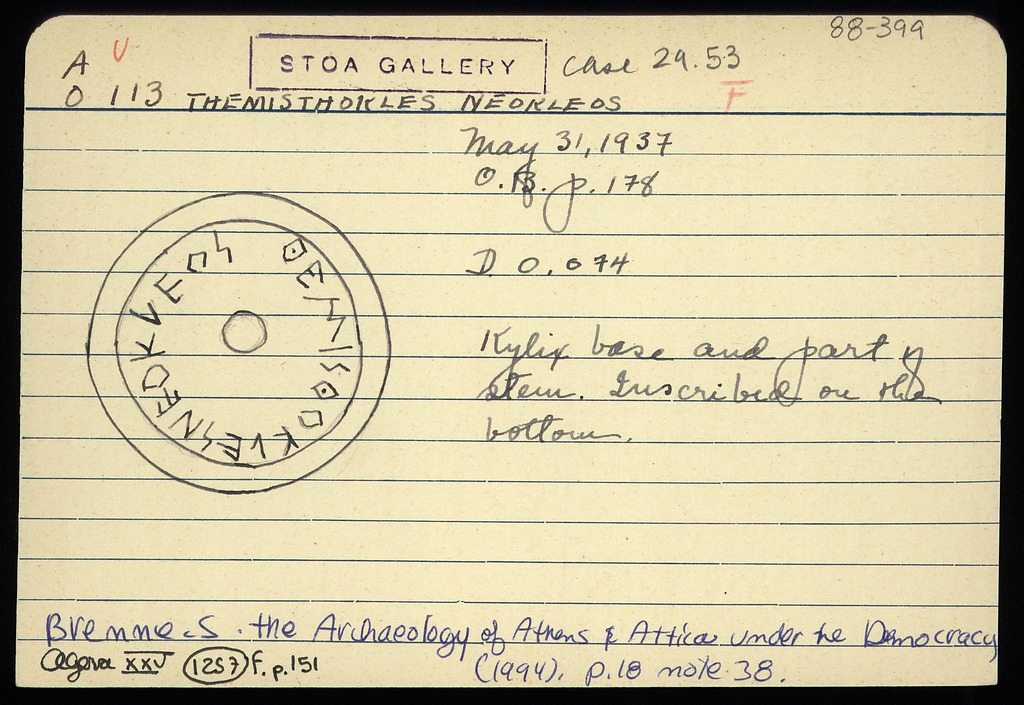 88-399
A U STOA GALLERY case 29.53
O 113 THEMISTHOKLES NEOKLEOS F
May 31, 1937
O.B. p. 178
D 0.074
ΘΕΜΙΣΘΟΚLΕΣ ΝΕΟΚLΕΟΣ
Kylix base and part of
stem. Inscribed on the
bottom.
Brenne S. the Archaeology of Athens & Attica under the Democracy
Agora XXV 1257 F. p. 151 (1994), p.18 note 38.